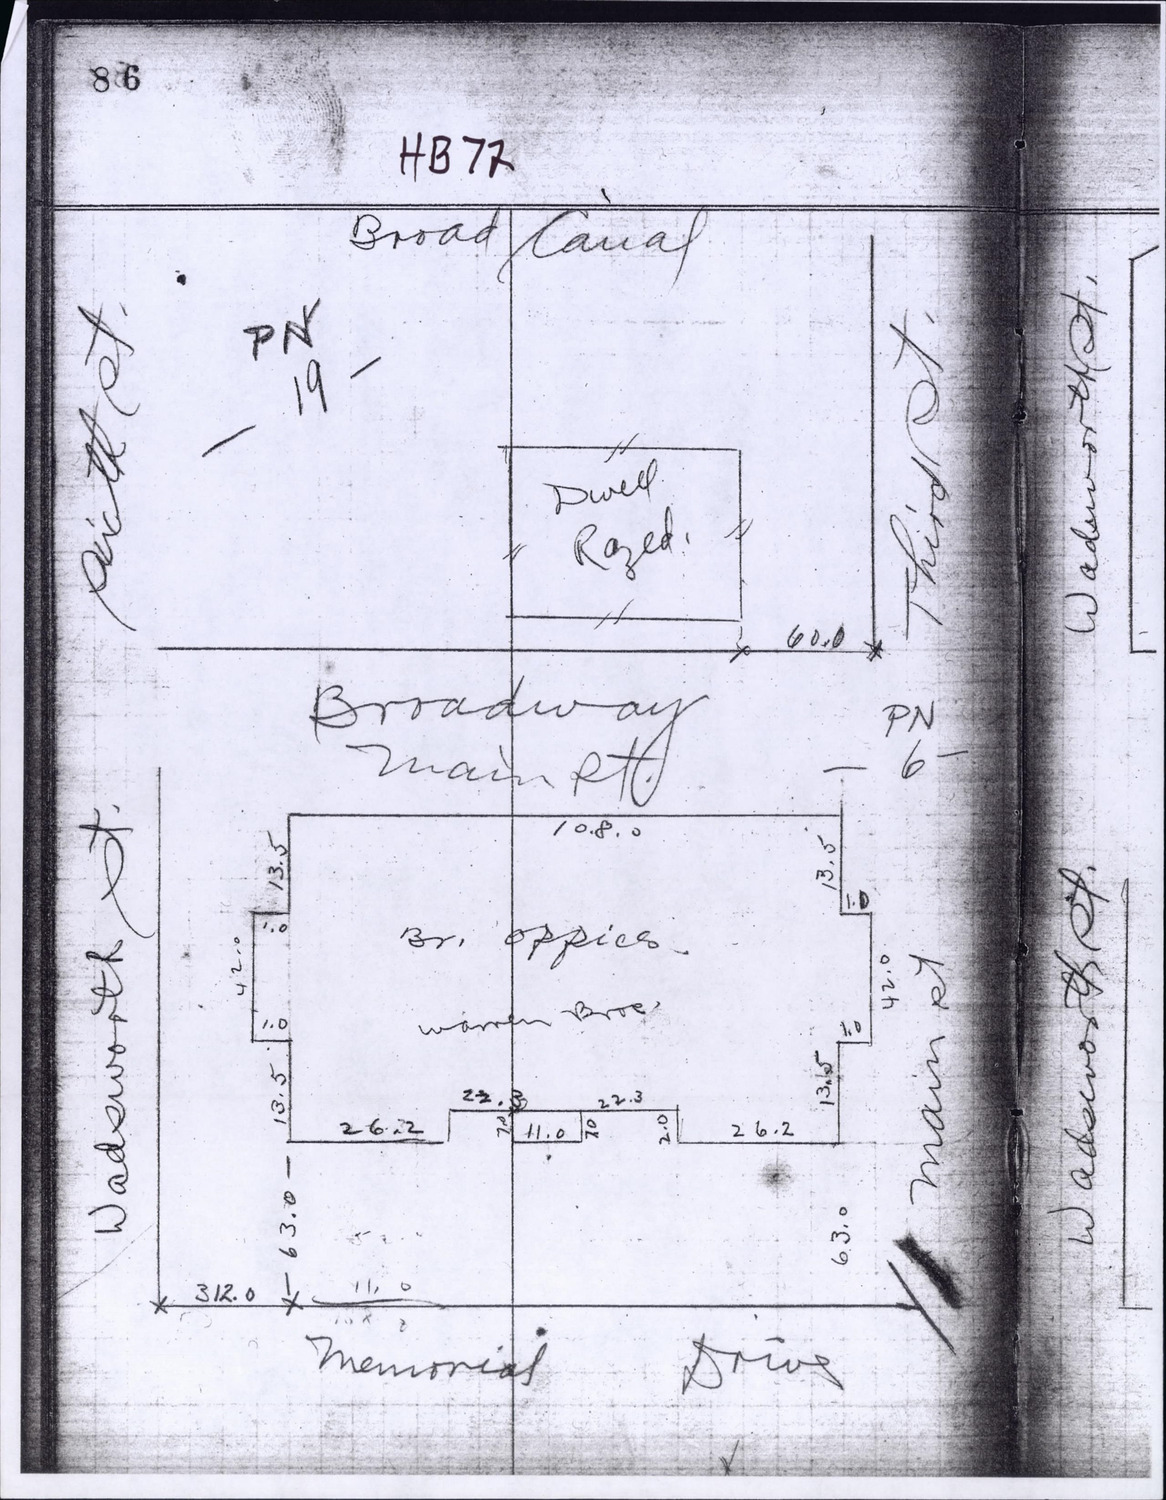 86
HB 72
Broad Canal
Sixth St.
PN
19
Third St.
Wadsworth St.
Dwell.
Razed.
60.0
Broadway
Main St.
PN
6
108.0
13.5
13.5
1.0
1.0
Wadsworth St.
42.0
Br. Offices
42.0
Main St
Wadsworth St.
Warren Bros'
1.0
1.0
13.5
13.5
22.3
22.3
26.2
7.0
11.0
7.0
2.0
26.2
63.0
63.0
312.0
11.0
Memorial Drive